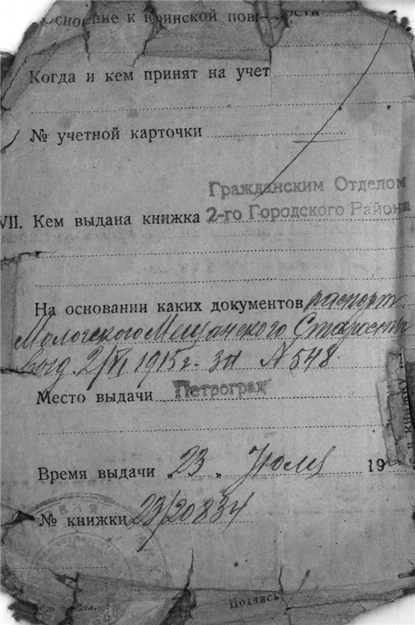 Основание к воинской повинности
Когда и кем принят на учет
№ учетной карточки
Гражданским Отделом
VII. Кем выдана книжка 2-го Городского Района
На основании каких документов паспорт
Мологского Мещанского Старосты
выд. 2/VI 1915 г. за № 548.
Место выдачи Петроград
Время выдачи „23„ Июля 19
№ книжки 23/20834
Подпись